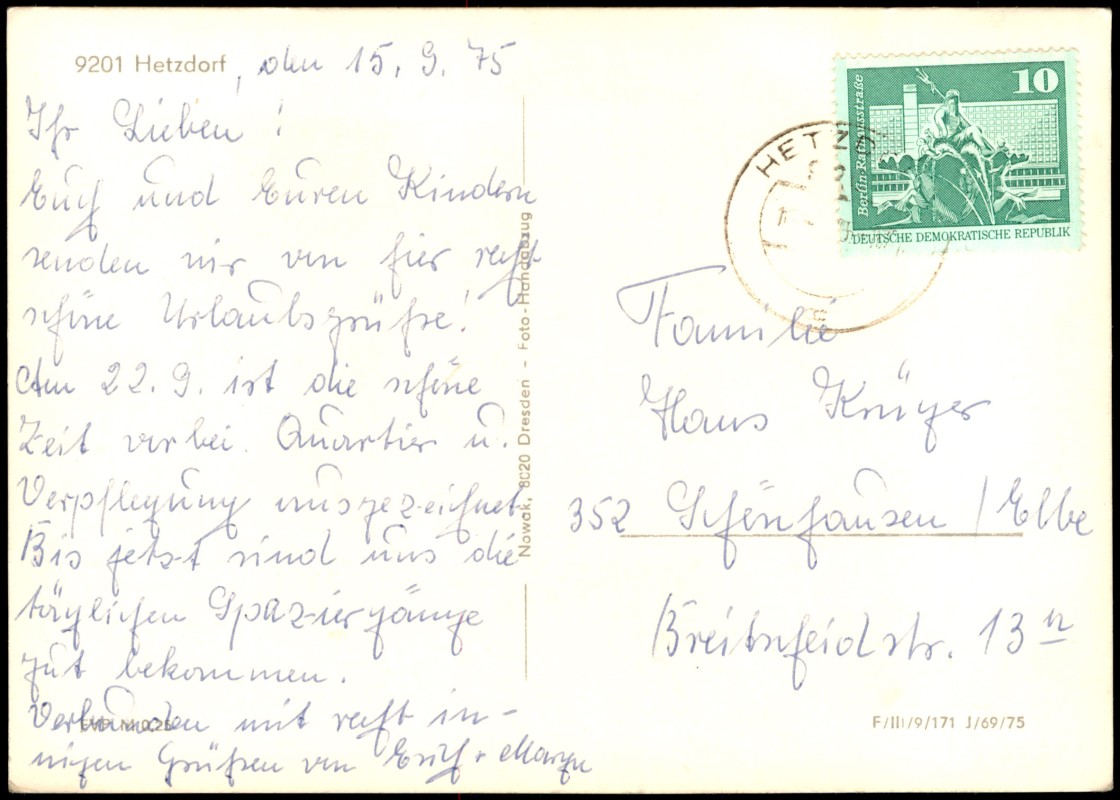 9201 Hetzdorf, den 15.9.75
Ihr Lieben!
Euch und Euren Kindern
senden wir von hier recht
schöne Urlaubsgrüße!
Am 22.9. ist die schöne
Zeit vorbei. Quartier u.
Verpflegung ausgezeichnet.
Bis jetzt sind uns die
täglichen Spaziergänge
gut bekommen.
Verbunden mit recht in-
nigen Grüßen von Erich +
EVP M 0,25
Nowak, 8020 Dresden - Foto-Handabzug
HETZD
10
Berlin-Rathausstraße
DEUTSCHE DEMOKRATISCHE REPUBLIK
Familie
Hans Krüger
352 Schönhausen/Elbe
13
F/III/9/171 J/69/75